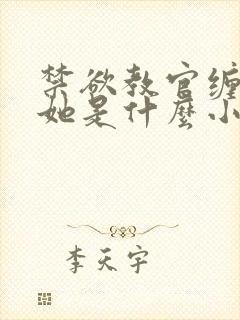 禁欲教官缠
她是什麼小
李天宇